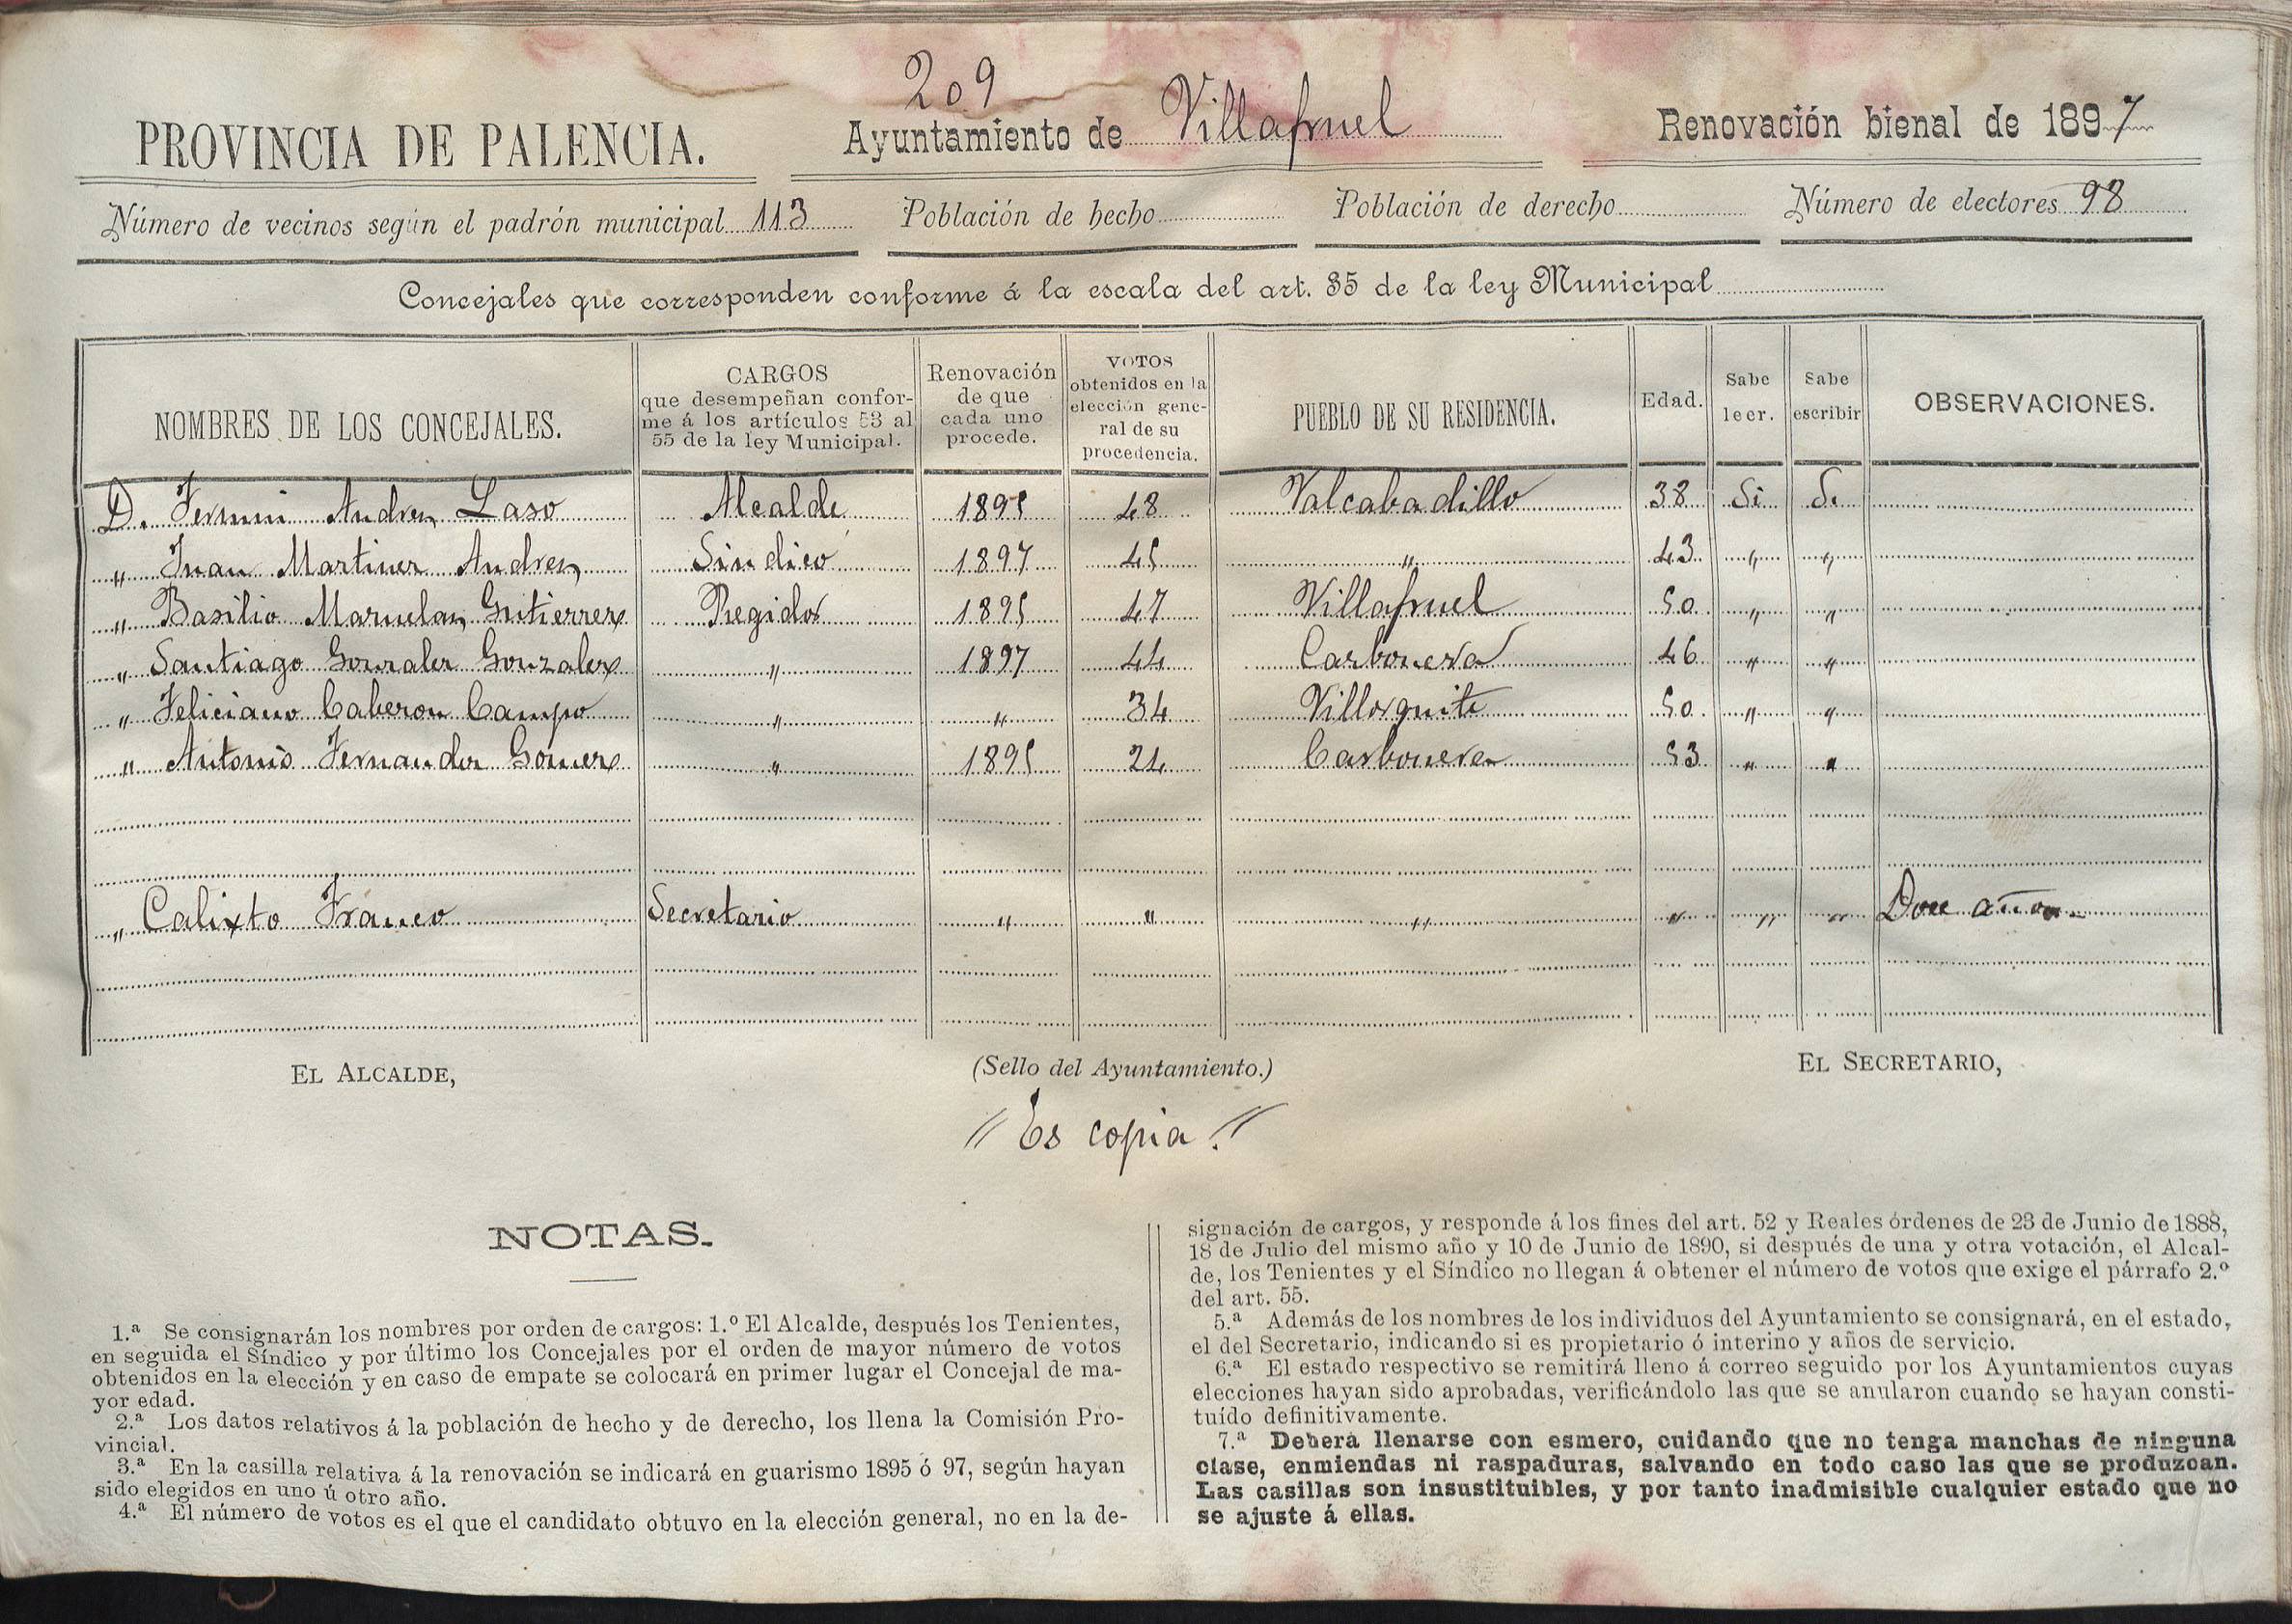 209
PROVINCIA DE PALENCIA. Ayuntamiento de Villafruel Renovación bienal de 1897
Número de vecinos según el padrón municipal 113 Población de hecho Población de derecho Número de electores 98
Concejales que corresponden conforme á la escala del art. 35 de la ley Municipal
NOMBRES DE LOS CONCEJALES. CARGOS que desempeñan conforme á los artículos 53 al 55 de la ley Municipal. Renovación de que cada uno procede. VOTOS obtenidos en la elección general de su procedencia. PUEBLO DE SU RESIDENCIA. Edad. Sabe leer. Sabe escribir OBSERVACIONES.
D. Fermin Andres Laso Alcalde 1895 48 Valcabadillo 38 Si Si
" Juan Martinez Andres Sindico 1897 45 " 43 " "
" Basilio Maruelas Gutierrez Regidor 1895 47 Villafruel 50 " "
" Santiago Gonzalez Gonzalez " 1897 44 Carbonera 46 " "
" Feliciano Caberon Campo " " 34 Villorquite 50 " "
" Antonio Fernandez Gomez " 1895 24 Carbonera 53 " "
" Calixto Franco Secretario " " " " " " Doce años.
EL ALCALDE, (Sello del Ayuntamiento.) EL SECRETARIO,
// Es copia. //
NOTAS.
1.ª Se consignarán los nombres por orden de cargos: 1.º El Alcalde, después los Tenientes,
en seguida el Síndico y por último los Concejales por el orden de mayor número de votos
obtenidos en la elección y en caso de empate se colocará en primer lugar el Concejal de ma-
yor edad.
2.ª Los datos relativos á la población de hecho y de derecho, los llena la Comisión Pro-
vincial.
3.ª En la casilla relativa á la renovación se indicará en guarismo 1895 ó 97, según hayan
sido elegidos en uno ú otro año.
4.ª El número de votos es el que el candidato obtuvo en la elección general, no en la de-
signación de cargos, y responde á los fines del art. 52 y Reales órdenes de 23 de Junio de 1888,
18 de Julio del mismo año y 10 de Junio de 1890, si después de una y otra votación, el Alcal-
de, los Tenientes y el Síndico no llegan á obtener el número de votos que exige el párrafo 2.º
del art. 55.
5.ª Además de los nombres de los individuos del Ayuntamiento se consignará, en el estado,
el del Secretario, indicando si es propietario ó interino y años de servicio.
6.ª El estado respectivo se remitirá lleno á correo seguido por los Ayuntamientos cuyas
elecciones hayan sido aprobadas, verificándolo las que se anularon cuando se hayan consti-
tuído definitivamente.
7.ª Deberá llenarse con esmero, cuidando que no tenga manchas de ninguna
clase, enmiendas ni raspaduras, salvando en todo caso las que se produzcan.
Las casillas son insustituibles, y por tanto inadmisible cualquier estado que no
se ajuste á ellas.